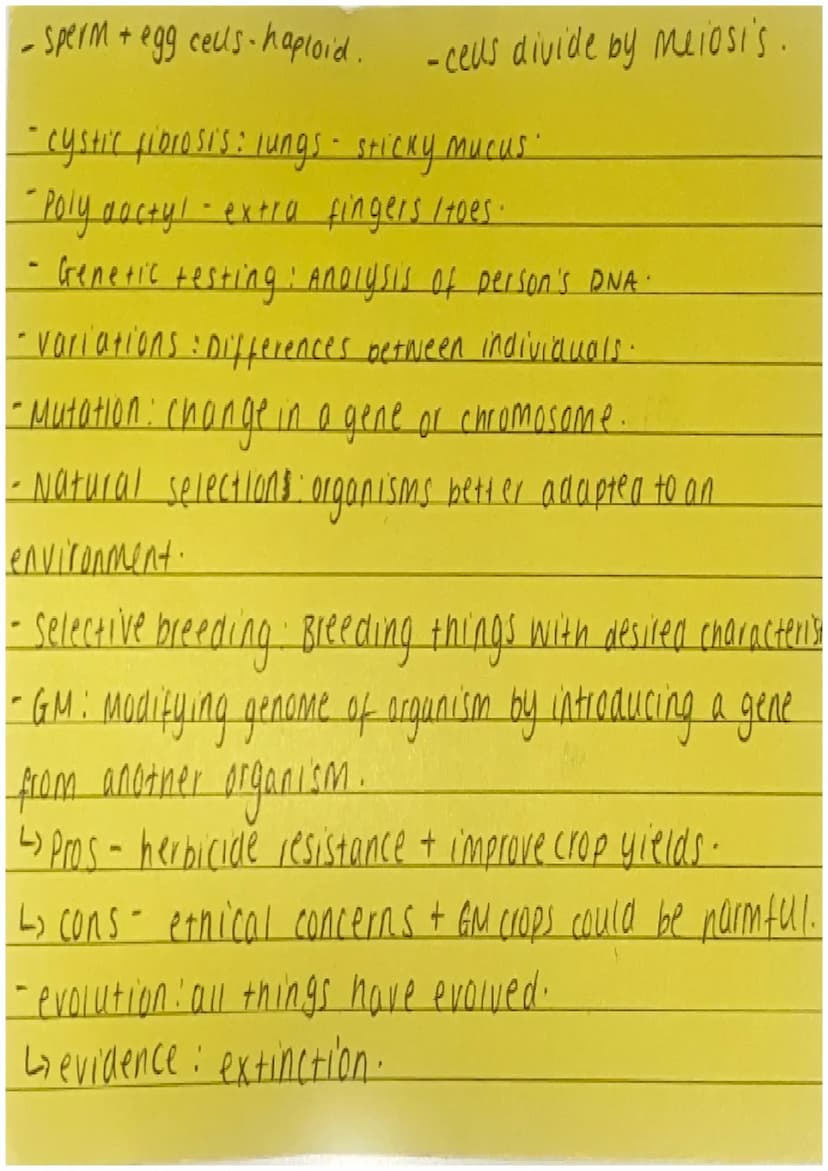 - sperm + egg cells - haploid. - cells divide by meiosis.
- cystic fibrosis: lungs - sticky mucus.
- Polydactyl - extra fingers/toes.
- Genetic testing: Analysis of person's DNA.
- variations: Differences between individuals.
- Mutation: change in a gene or chromosome.
- Natural selections: organisms better adapted to an
environment.
- Selective breeding: Breeding things with desired characteris
- GM: Modifying genome of organism by introducing a gene
from another organism.
↳ Pros - herbicide resistance + improve crop yields.
↳ cons - ethical concerns + GM crops could be harmful.
- evolution: all things have evolved.
↳ evidence: extinction.